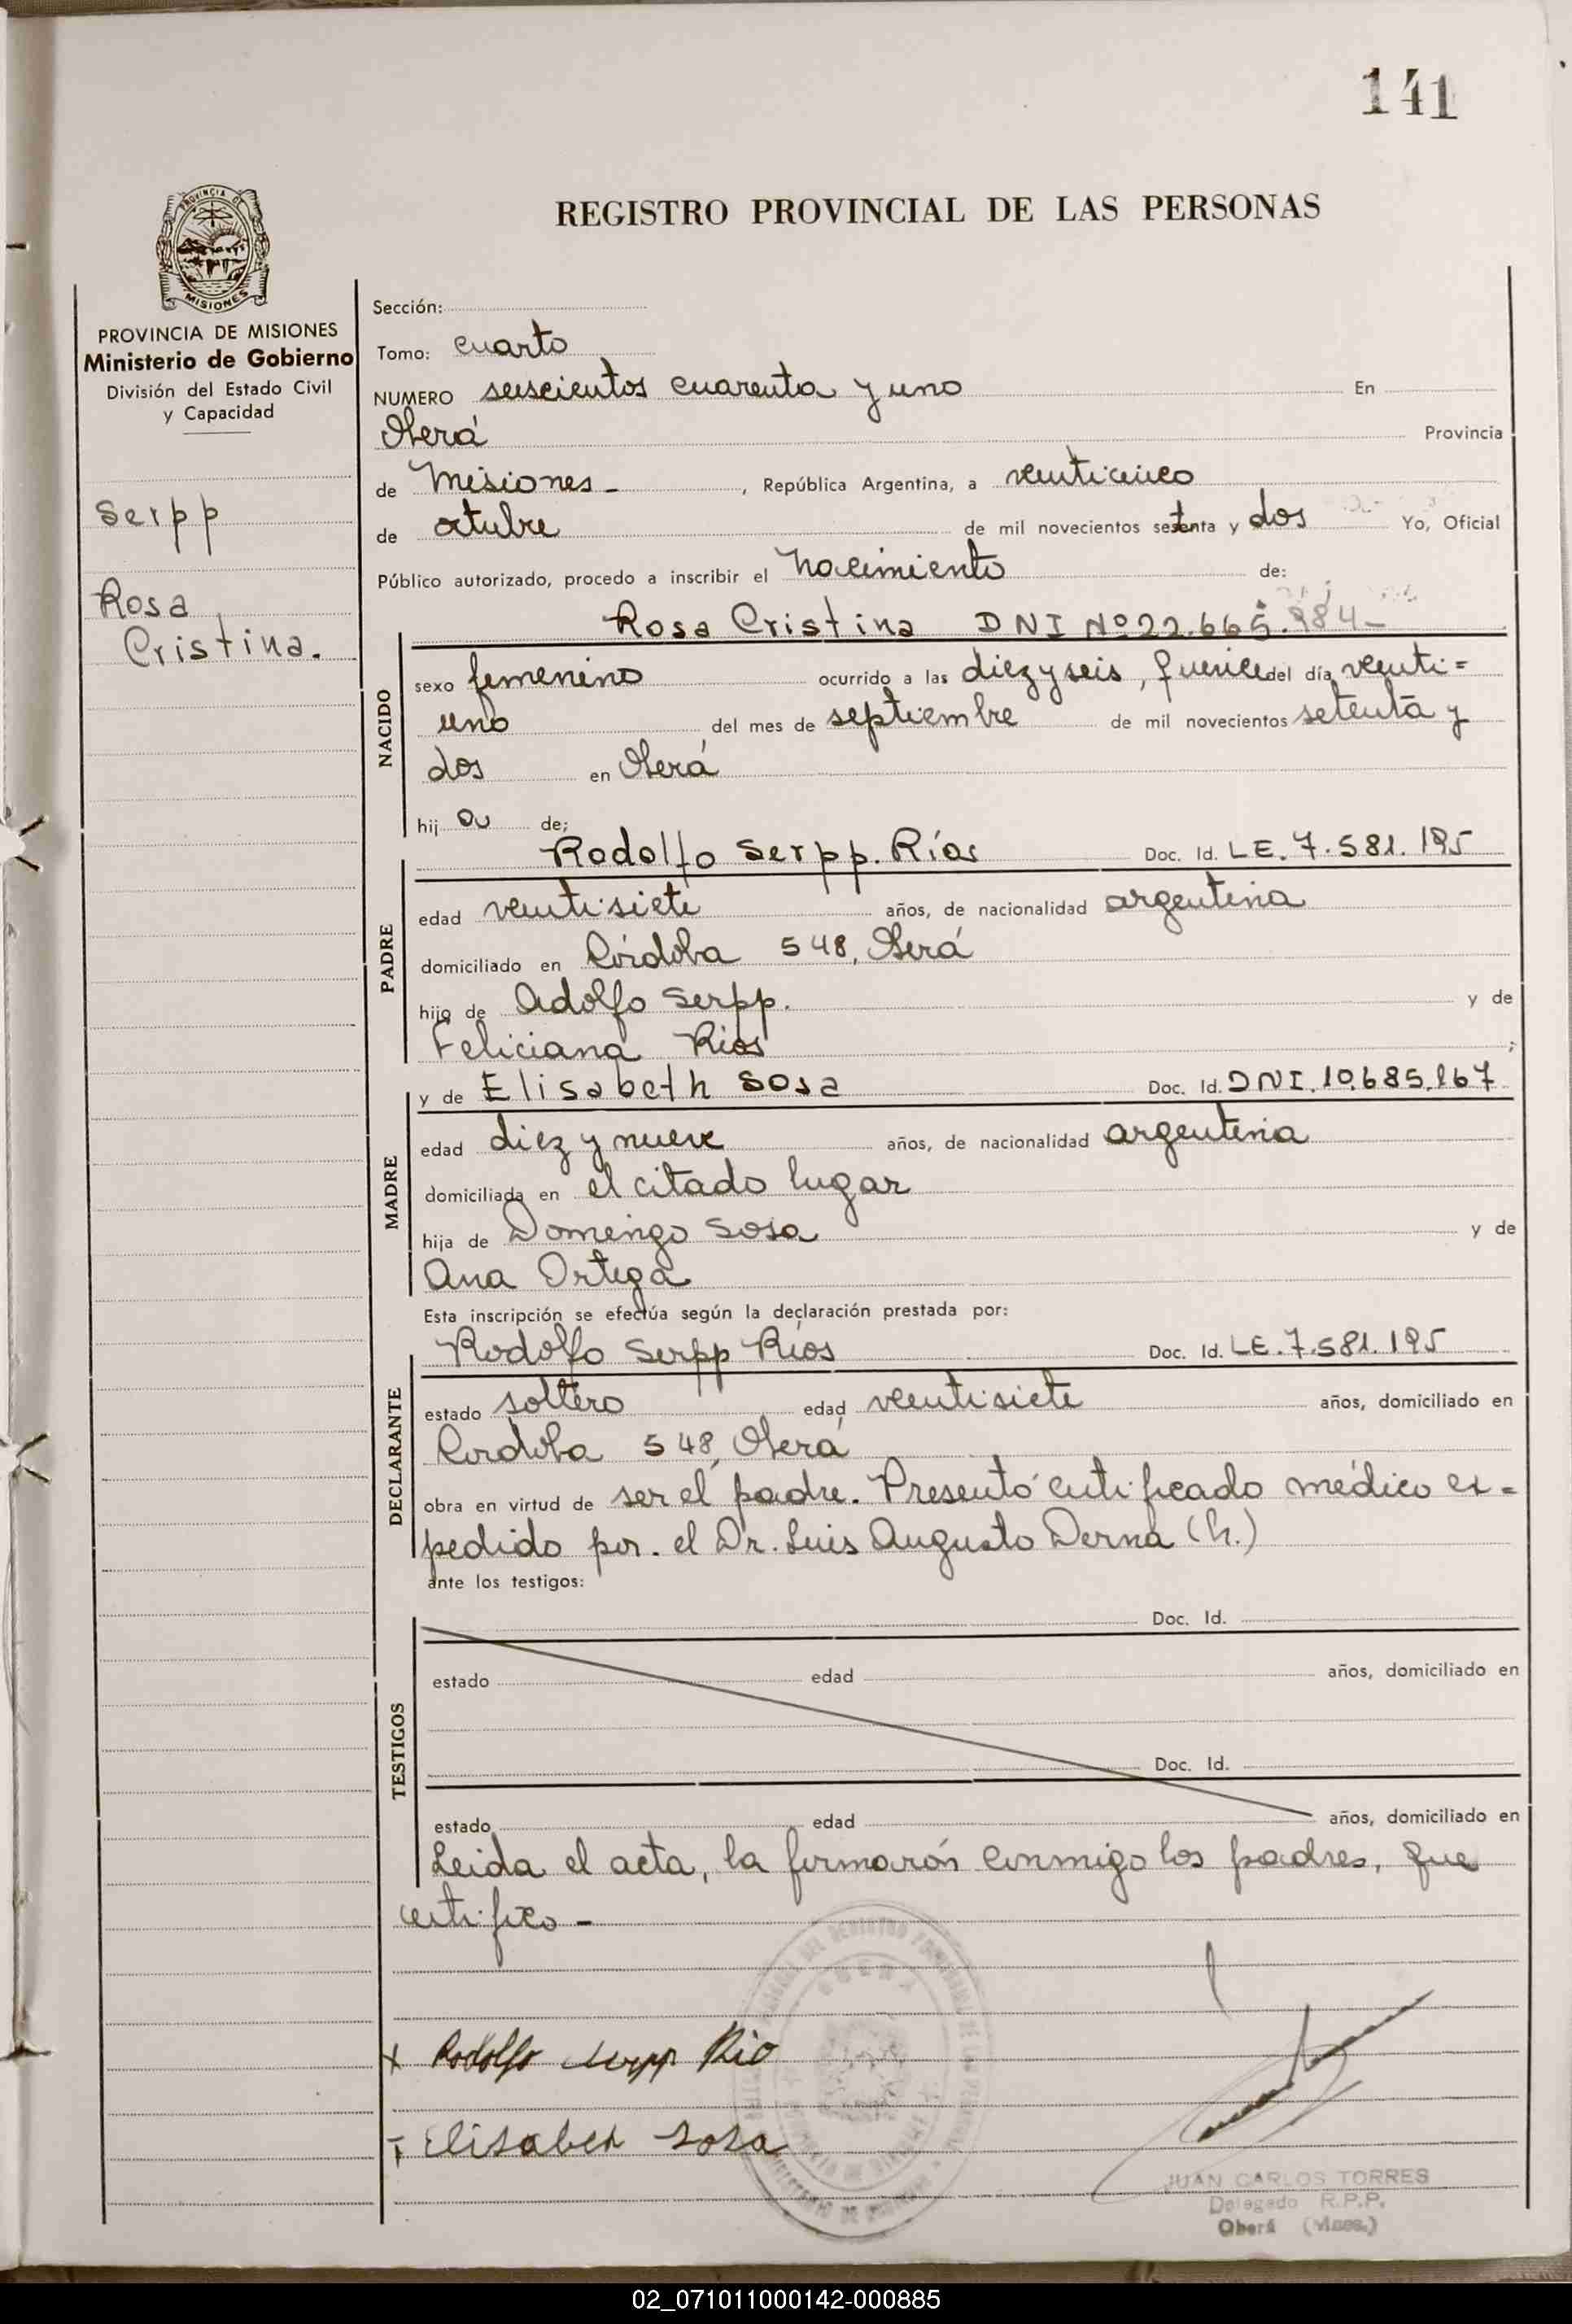 141
PROVINCIA DE
MISIONES
REGISTRO PROVINCIAL DE LAS PERSONAS
PROVINCIA DE MISIONES
Ministerio de Gobierno
División del Estado Civil
y Capacidad
Serpp
Rosa
Cristina.
Sección:
Tomo: cuarto
NUMERO seiscientos cuarenta y uno En
Oberá Provincia
de Misiones - , República Argentina, a veinticinco
de octubre de mil novecientos setenta y dos Yo, Oficial
Público autorizado, procedo a inscribir el nacimiento de:
Rosa Cristina DNI Nº 22.665.984-
NACIDO
sexo femenino ocurrido a las diez y seis, quince del día veinti=
uno del mes de septiembre de mil novecientos setenta y
dos en Oberá
hij a de:
Rodolfo Serpp. Ríos Doc. Id. LE. 7.581.195
PADRE
edad veintisiete años, de nacionalidad argentina
domiciliado en Córdoba 548, Oberá
hijo de Adolfo Serpp. y de
Feliciana Rios ;
y de Elisabeth Sosa Doc. Id. DNI. 10.685.167
MADRE
edad diez y nueve años, de nacionalidad argentina
domiciliada en el citado lugar
hija de Domingo Sosa y de
Ana Ortega
Esta inscripción se efectúa según la declaración prestada por:
Rodolfo Serpp Ríos Doc. Id. LE. 7.581.195
DECLARANTE
estado soltero edad veintisiete años, domiciliado en
Cordoba 548, Oberá
obra en virtud de ser el padre. Presentó certificado médico ex=
pedido por. el Dr. Luis Augusto Derna (h.)
ante los testigos:
Doc. Id.
TESTIGOS
estado edad años, domiciliado en
Doc. Id.
estado edad años, domiciliado en
Leida el acta, la firmarón conmigo los padres, que
certifico -
Rodolfo Serpp Rio
Elisabeh Sosa
JUAN CARLOS TORRES
Delegado R.P.P.
Oberá (Mnes.)
02_071011000142-000885